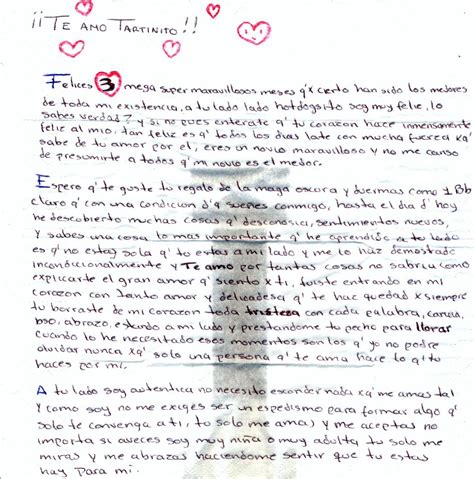 ¡¡TE AMO TARTINITO!!
Felices 3 mega super maravillosos meses q'x cierto han sido los mejores
de toda mi existencia, a tu lado lado hotdogsito soy muy feliz, lo
sabes verdad? y si no pues enterate q' tu corazon hace inmensamente
feliz al mio, tan feliz es q' todos los dias late con mucha fuerza xq'
sabe de tu amor por el, eres un novio maravilloso y no me canso
de presumirte a todos q' mi novio es el mejor.
Espero q' te guste tu regalo de la maga oscura y duermas como 1 Bb
claro q' con una condicion d' q sueñes conmigo, hasta el dia d' hoy
he descubierto muchas cosas q' desconocia, sentimientos nuevos,
y sabes una cosa lo mas importante q' he aprendido a tu lado
es q' no estoy sola q' tu estas a mi lado y me lo haz demostrado
incondicionalmente y Te amo por tantas cosas no sabria como
explicarte el gran amor q' siento x ti, fuiste entrando en mi
corazon con tanto amor y delicadesa q' te haz quedad x siempre
tu borraste de mi corazon toda tristeza con cada palabra, caricia,
bso, abrazo, estando a mi lado y prestandome tu pecho para llorar
cuando lo he necesitado esos momentos son los q' yo no podre
olvidar nunca xq' solo una persona q' te ama hace lo q' tu
haces por mi.
A tu lado soy autentica no necesito esconder nada xq' me amas tal
y como soy no me exiges ser un espedismo para formar algo q'
solo te convenga a ti, tu solo me amas y me aceptas no
importa si aveces soy muy niña o muy adulta tu solo me
miras y me abrazas haciendome sentir que tu estas
hay para mi.